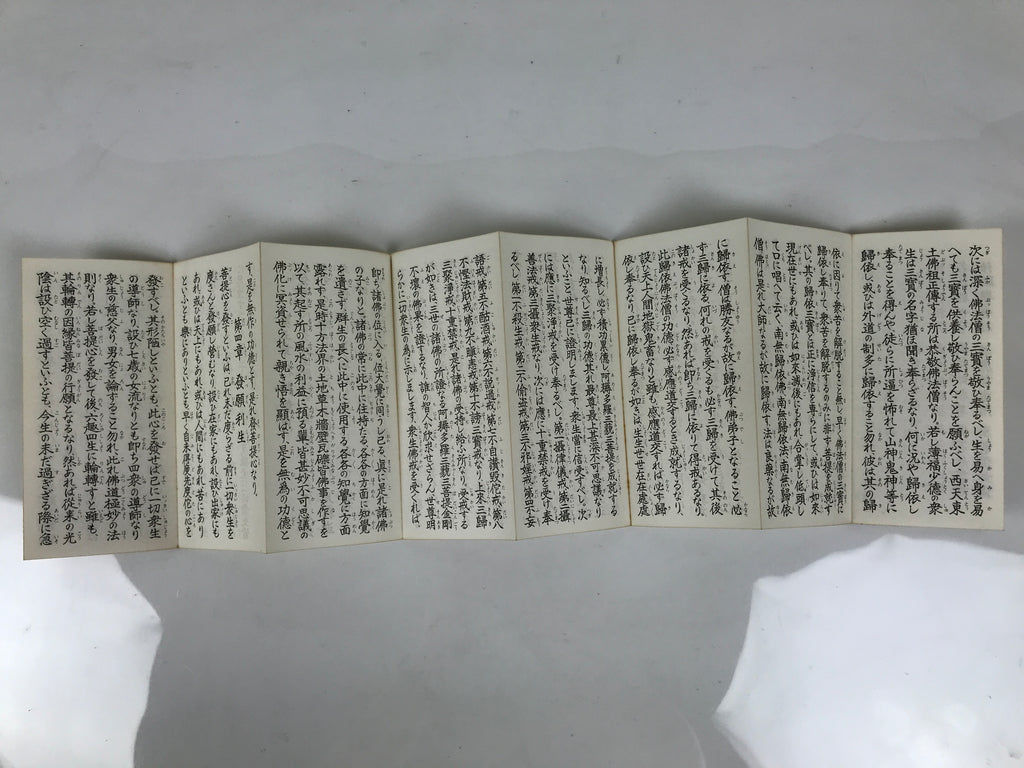 次には深く佛法僧の三寶を敬ひ奉るべし、生を易へ身を易
へても三寶を供養し敬ひ奉らんことを願ふべし、西天東
土佛祖正傳する所は恭敬佛法僧なり、若し薄福少德の衆
生は三寶の名字猶ほ聞き奉らざるなり、何に況や歸依し
奉ることを得んや、徒らに所逼を怖れて山神鬼神等に
歸依し、或ひは外道の制多に歸依すること勿れ彼は其の歸
依に因りて衆苦を解脱すること無し早く佛法僧の三寶に
歸依し奉りて、衆苦を解脱するのみに非ず菩提を成就す
べし、其の歸依三寶とは正に淨信を專らにして、或ひは如來
現在世にもあれ、或ひは如來滅後にもあれ、合掌し低頭し
て口に唱へて云く、南無歸依佛、南無歸依法、南無歸依
僧、佛は是れ大師なるが故に歸依す、法は良藥なるが故
に歸依す、僧は勝友なるが故に歸依す、佛弟子となること必
ず三歸に依る、何れの戒を受くるも必ず三歸を受けて、其後
諸戒を受くるなり、然あれば即ち三歸に依りて得戒あるなり、
此歸依佛法僧の功德、必ず感應道交する時成就するなり、
設ひ天上人間地獄鬼畜なりと雖も、感應道交すれば必ず歸
依し奉るなり、已に歸依し奉るが如きは、生生世世在在處處
に增長し、必ず積功累德し、阿耨多羅三藐三菩提を成就する
なり、知るべし三歸の功德其れ最尊最上甚深不可思議なり
といふこと、世尊已に證明しまします、衆生當に信受すべし、次
には應に三聚淨戒を受け奉るべし、第一攝律儀戒、第二攝
善法戒、第三攝衆生戒なり、次には應に十重禁戒を受け奉
るべし、第一不殺生戒、第二不偸盜戒、第三不邪婬戒、第四不妄
語戒、第五不酤酒戒、第六不說過戒、第七不自讃毀佗戒、第八
不慳法財戒、第九不瞋恚戒、第十不謗三寶戒なり、上來三歸
三聚淨戒、十重禁戒、是れ諸佛の受持し給ふ所なり、受戒する
がやきは、三世の諸佛の所證なる阿耨多羅三藐三菩提金剛
不壞の佛果を證するなり、誰の智人か欣求せざらん、世尊明
らかに一切衆生の爲に示しまします、衆生佛戒を受くれば、
即ち諸佛の位に入る、位大覺に同うし已る、眞に是れ諸佛
の子なりと、諸佛の常に此中に住持たる、各各の方面に知覺
を遺さず、群生の長へに此中に使用する、各各の知覺に方面
露れず、是時十方法界の土地草木牆壁瓦礫皆佛事を作すを
以て、其起す所の風水の利益に預る輩、皆甚妙不可思議の
佛化に冥資せられて親き悟を顯はす、是を無爲の功德と
す、是を無作の功德とす、是れ發菩提心なり、
第四章 發願利生
菩提心を發すといふは、己れ未だ度らざる前に一切衆生を
度さんと發願し營むなり、設ひ在家にもあれ設ひ出家にも
あれ、或ひは天上にもあれ、或ひは人間にもあれ、苦にありと
いふとも樂にありといふとも、早く自未得度先度佗の心を
發すべし、其形陋しといふとも、此心を發せば、已に一切衆生
の導師なり、設ひ七歳の女流なりとも即ち四衆の導師なり
衆生の慈父なり、男女を論ずること勿れ、此れ佛道極妙の法
則なり、若し菩提心を發して後、六趣四生に輪轉すと雖も、
其輪轉の因緣皆菩提の行願となるなり、然あれば從來の光
陰は設ひ空く過すといふとも、今生の未だ過ぎざる際に急